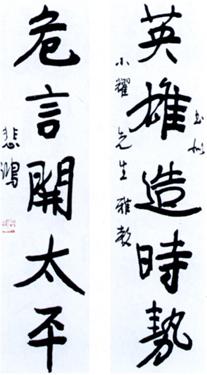 英雄造時勢
小耀先生雅教
危言開太平
悲鴻